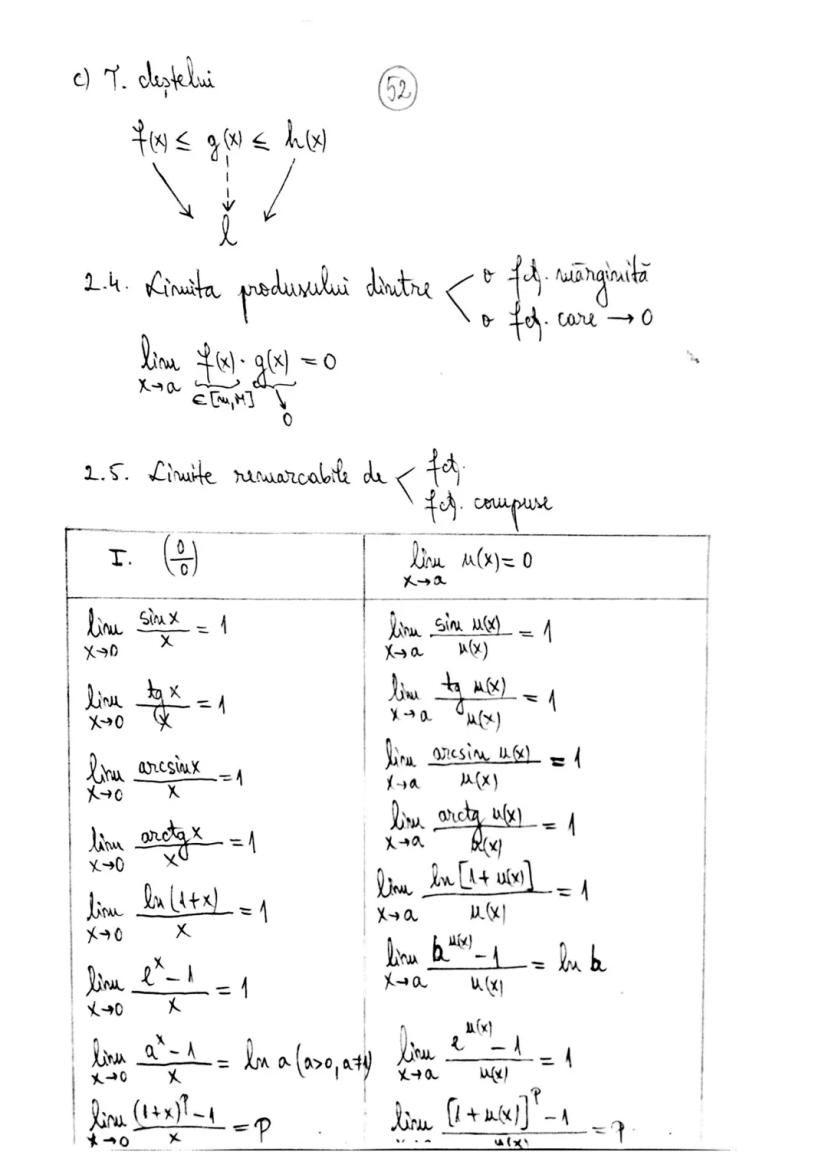 c) T. cleștelui
52
f(x) ≤ g(x) ≤ h(x)
l
2.4. Limita produsului dintre < o fcț. mărginită
o fcț. care → 0
lim x→a f(x) · g(x) = 0
∈[m,M] 0
2.5. Limite remarcabile de < fcț.
fcț. compuse
I. (0/0) lim x→a u(x) = 0
lim x→0 sin x / x = 1 lim x→a sin u(x) / u(x) = 1
lim x→0 tg x / x = 1 lim x→a tg u(x) / u(x) = 1
lim x→0 arcsin x / x = 1 lim x→a arcsin u(x) / u(x) = 1
lim x→0 arctg x / x = 1 lim x→a arctg u(x) / u(x) = 1
lim x→0 ln(1+x) / x = 1 lim x→a ln[1+u(x)] / u(x) = 1
lim x→0 e^x − 1 / x = 1 lim x→a b^u(x) − 1 / u(x) = ln b
lim x→0 a^x − 1 / x = ln a (a>0, a≠1) lim x→a e^u(x) − 1 / u(x) = 1
lim x→0 (1+x)^p − 1 / x = p lim [1+u(x)]^p − 1 / u(x) = p